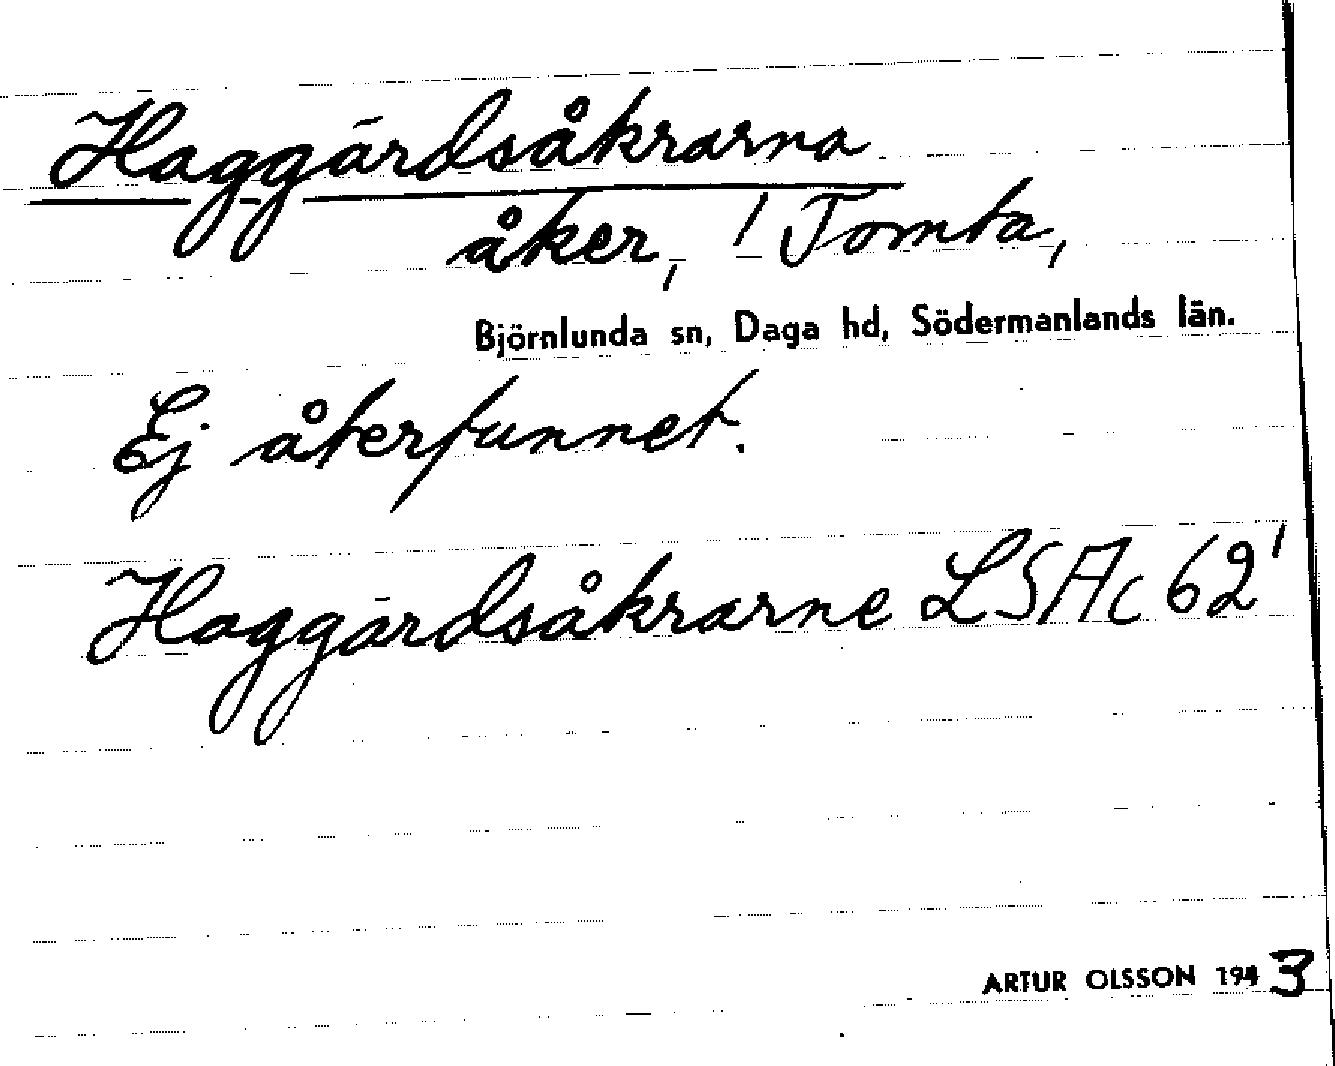 Haggärdsåkrarna
åker, / Tomta,
Björnlunda sn, Daga hd, Södermanlands län.
Ej återfunnet.
Haggärdsåkrarne LSA c 62¹
ARTUR OLSSON 1943